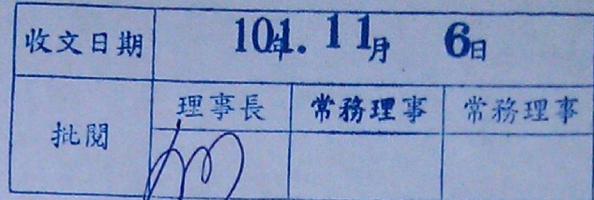 收文日期 101年.11月 6日
批閱 理事長 常務理事 常務理事